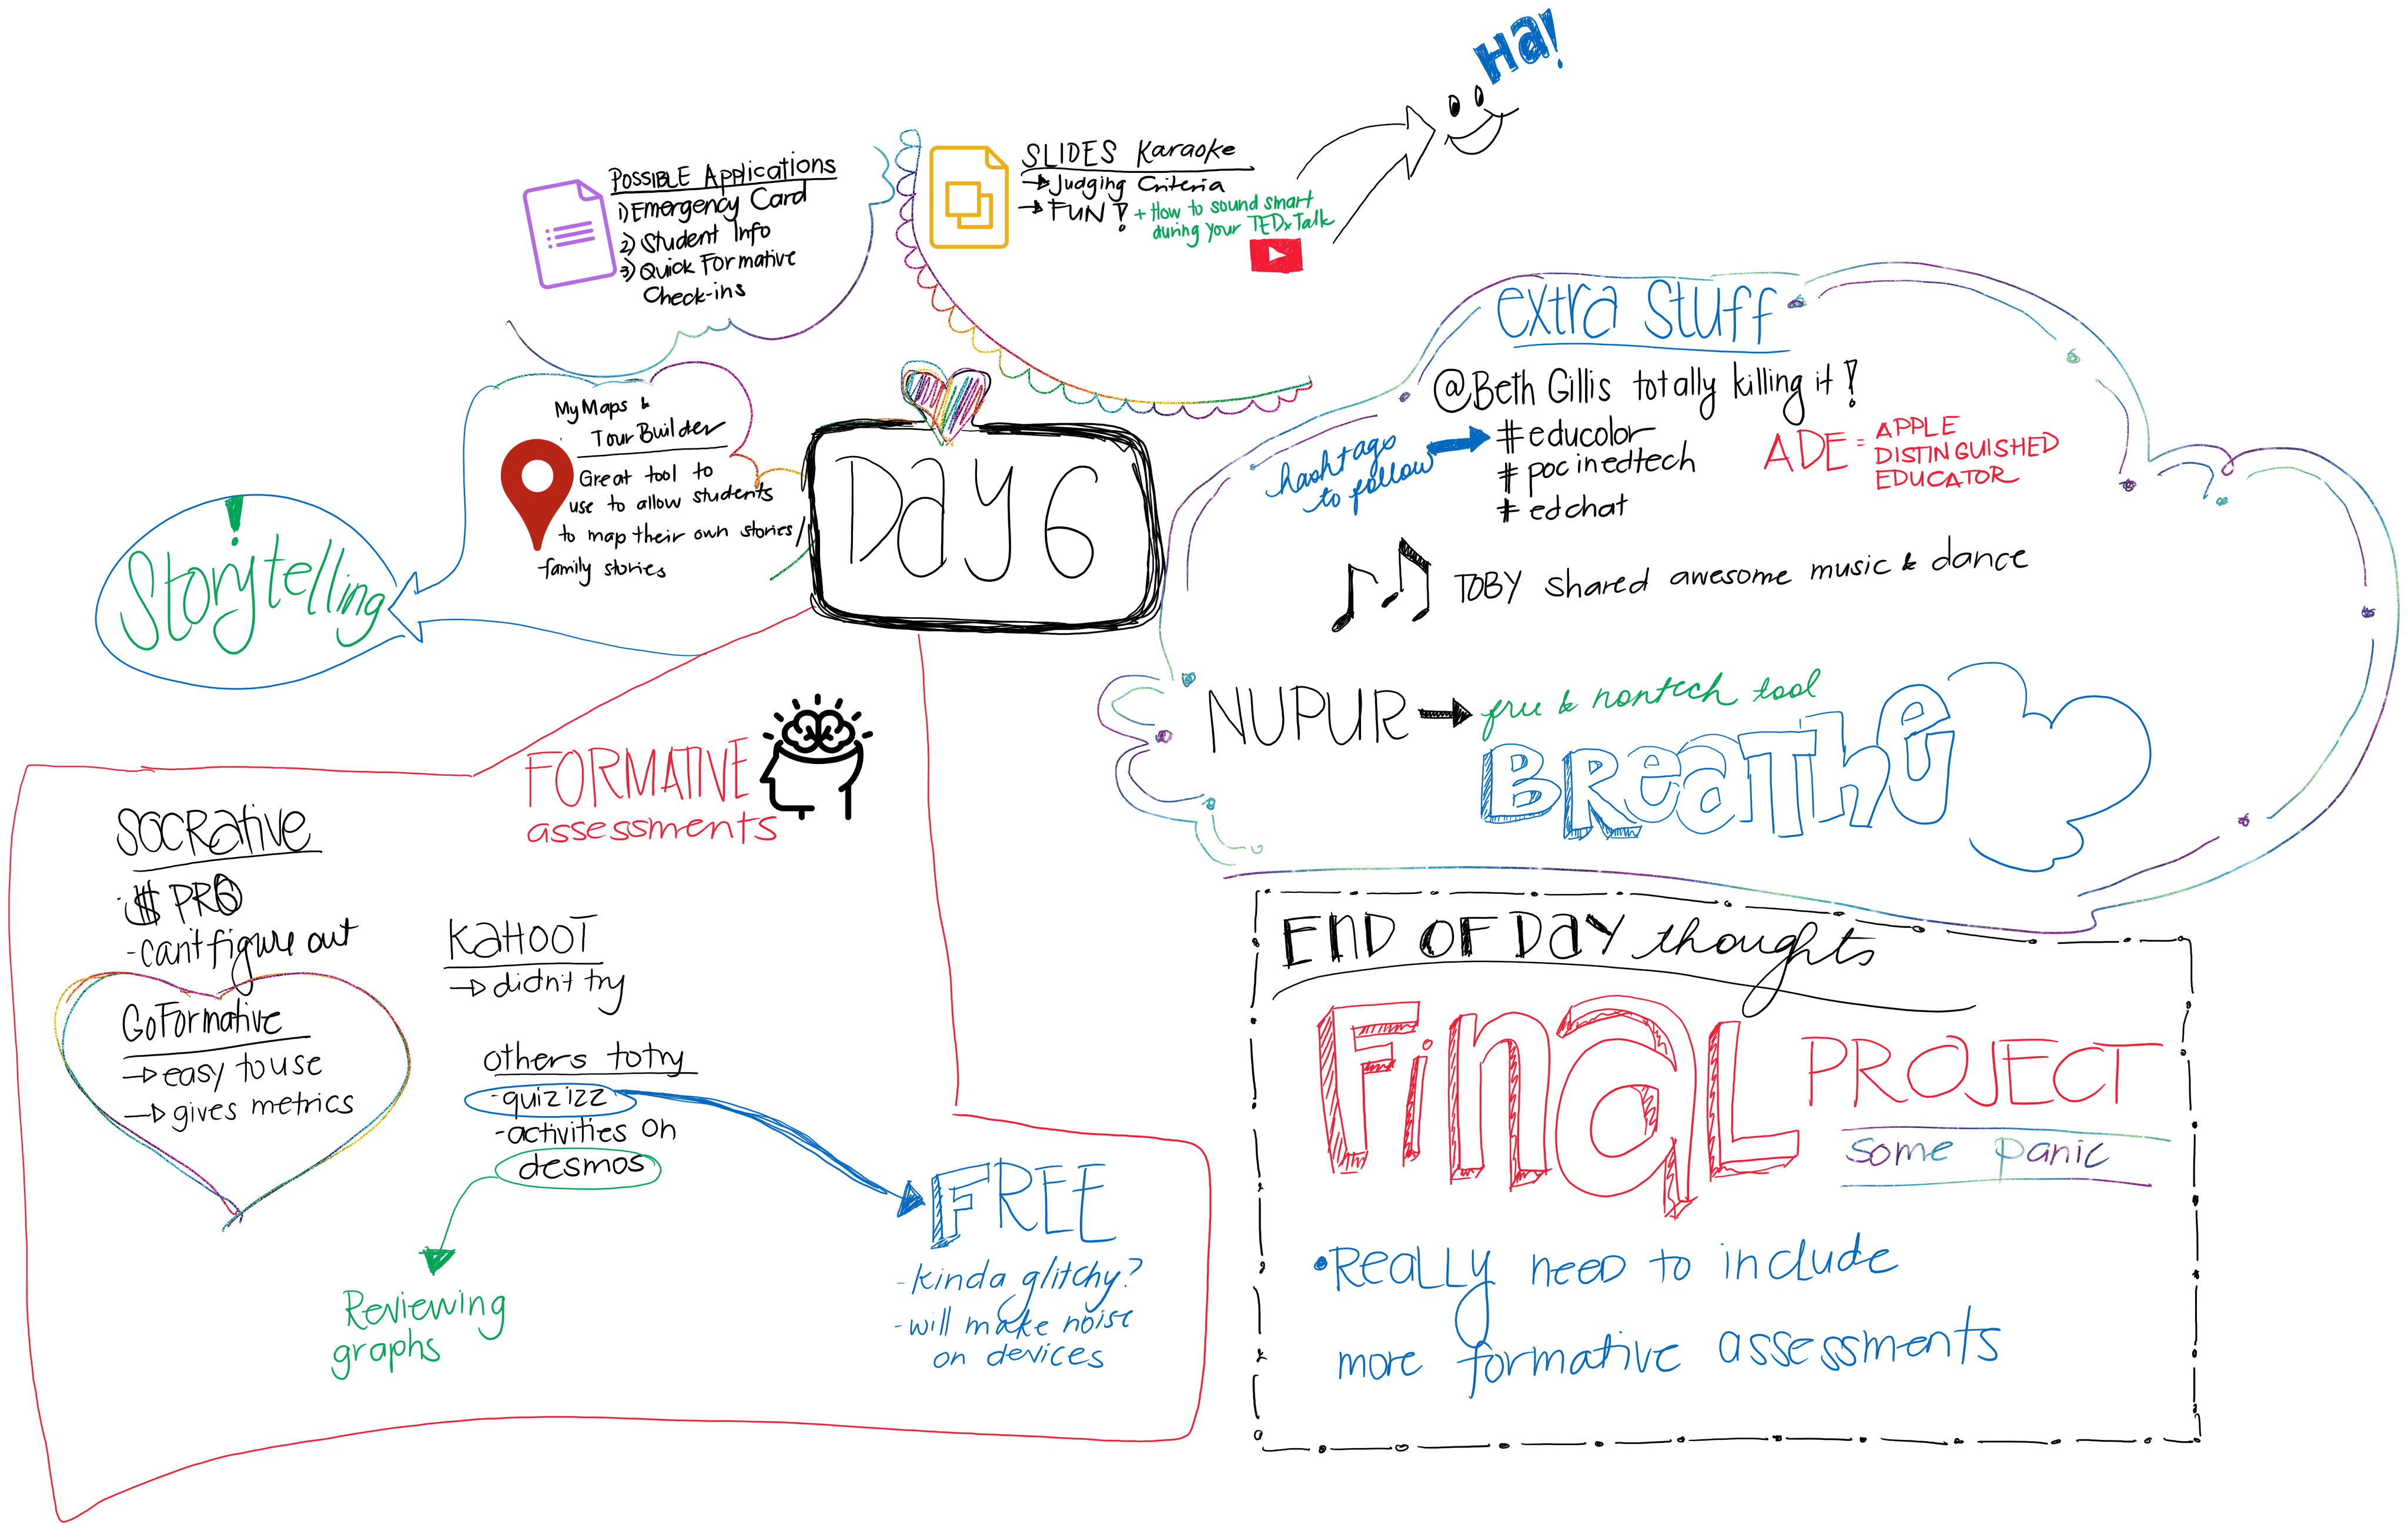 Ha!
POSSIBLE Applications
1) Emergency Card
2) Student Info
3) Quick Formative
Check-ins
SLIDES Karaoke
→ Judging Criteria
→ FUN! + How to sound smart
during your TEDx Talk
MyMaps &
TourBuilder
Great tool to
use to allow students
to map their own stories/
family stories
Storytelling
!
Day 6
extra stuff
@Beth Gillis totally killing it!
hashtags
to follow
#educolor
#pocinedtech
#edchat
ADE = APPLE
DISTINGUISHED
EDUCATOR
TOBY shared awesome music & dance
NUPUR → free & nontech tool
BReaThe
FORMATIVE
assessments
SOCRative
-$ PRO
-cant figure out
GoFormative
→ easy to use
→ gives metrics
KaHOOT
→ didn't try
others to try
-quizizz
-activities on
desmos
Reviewing
graphs
FREE
-kinda glitchy?
-will make noise
on devices
END OF DaY thoughts
FinaL PROJECT
some panic
•REALLY need to include
more formative assessments